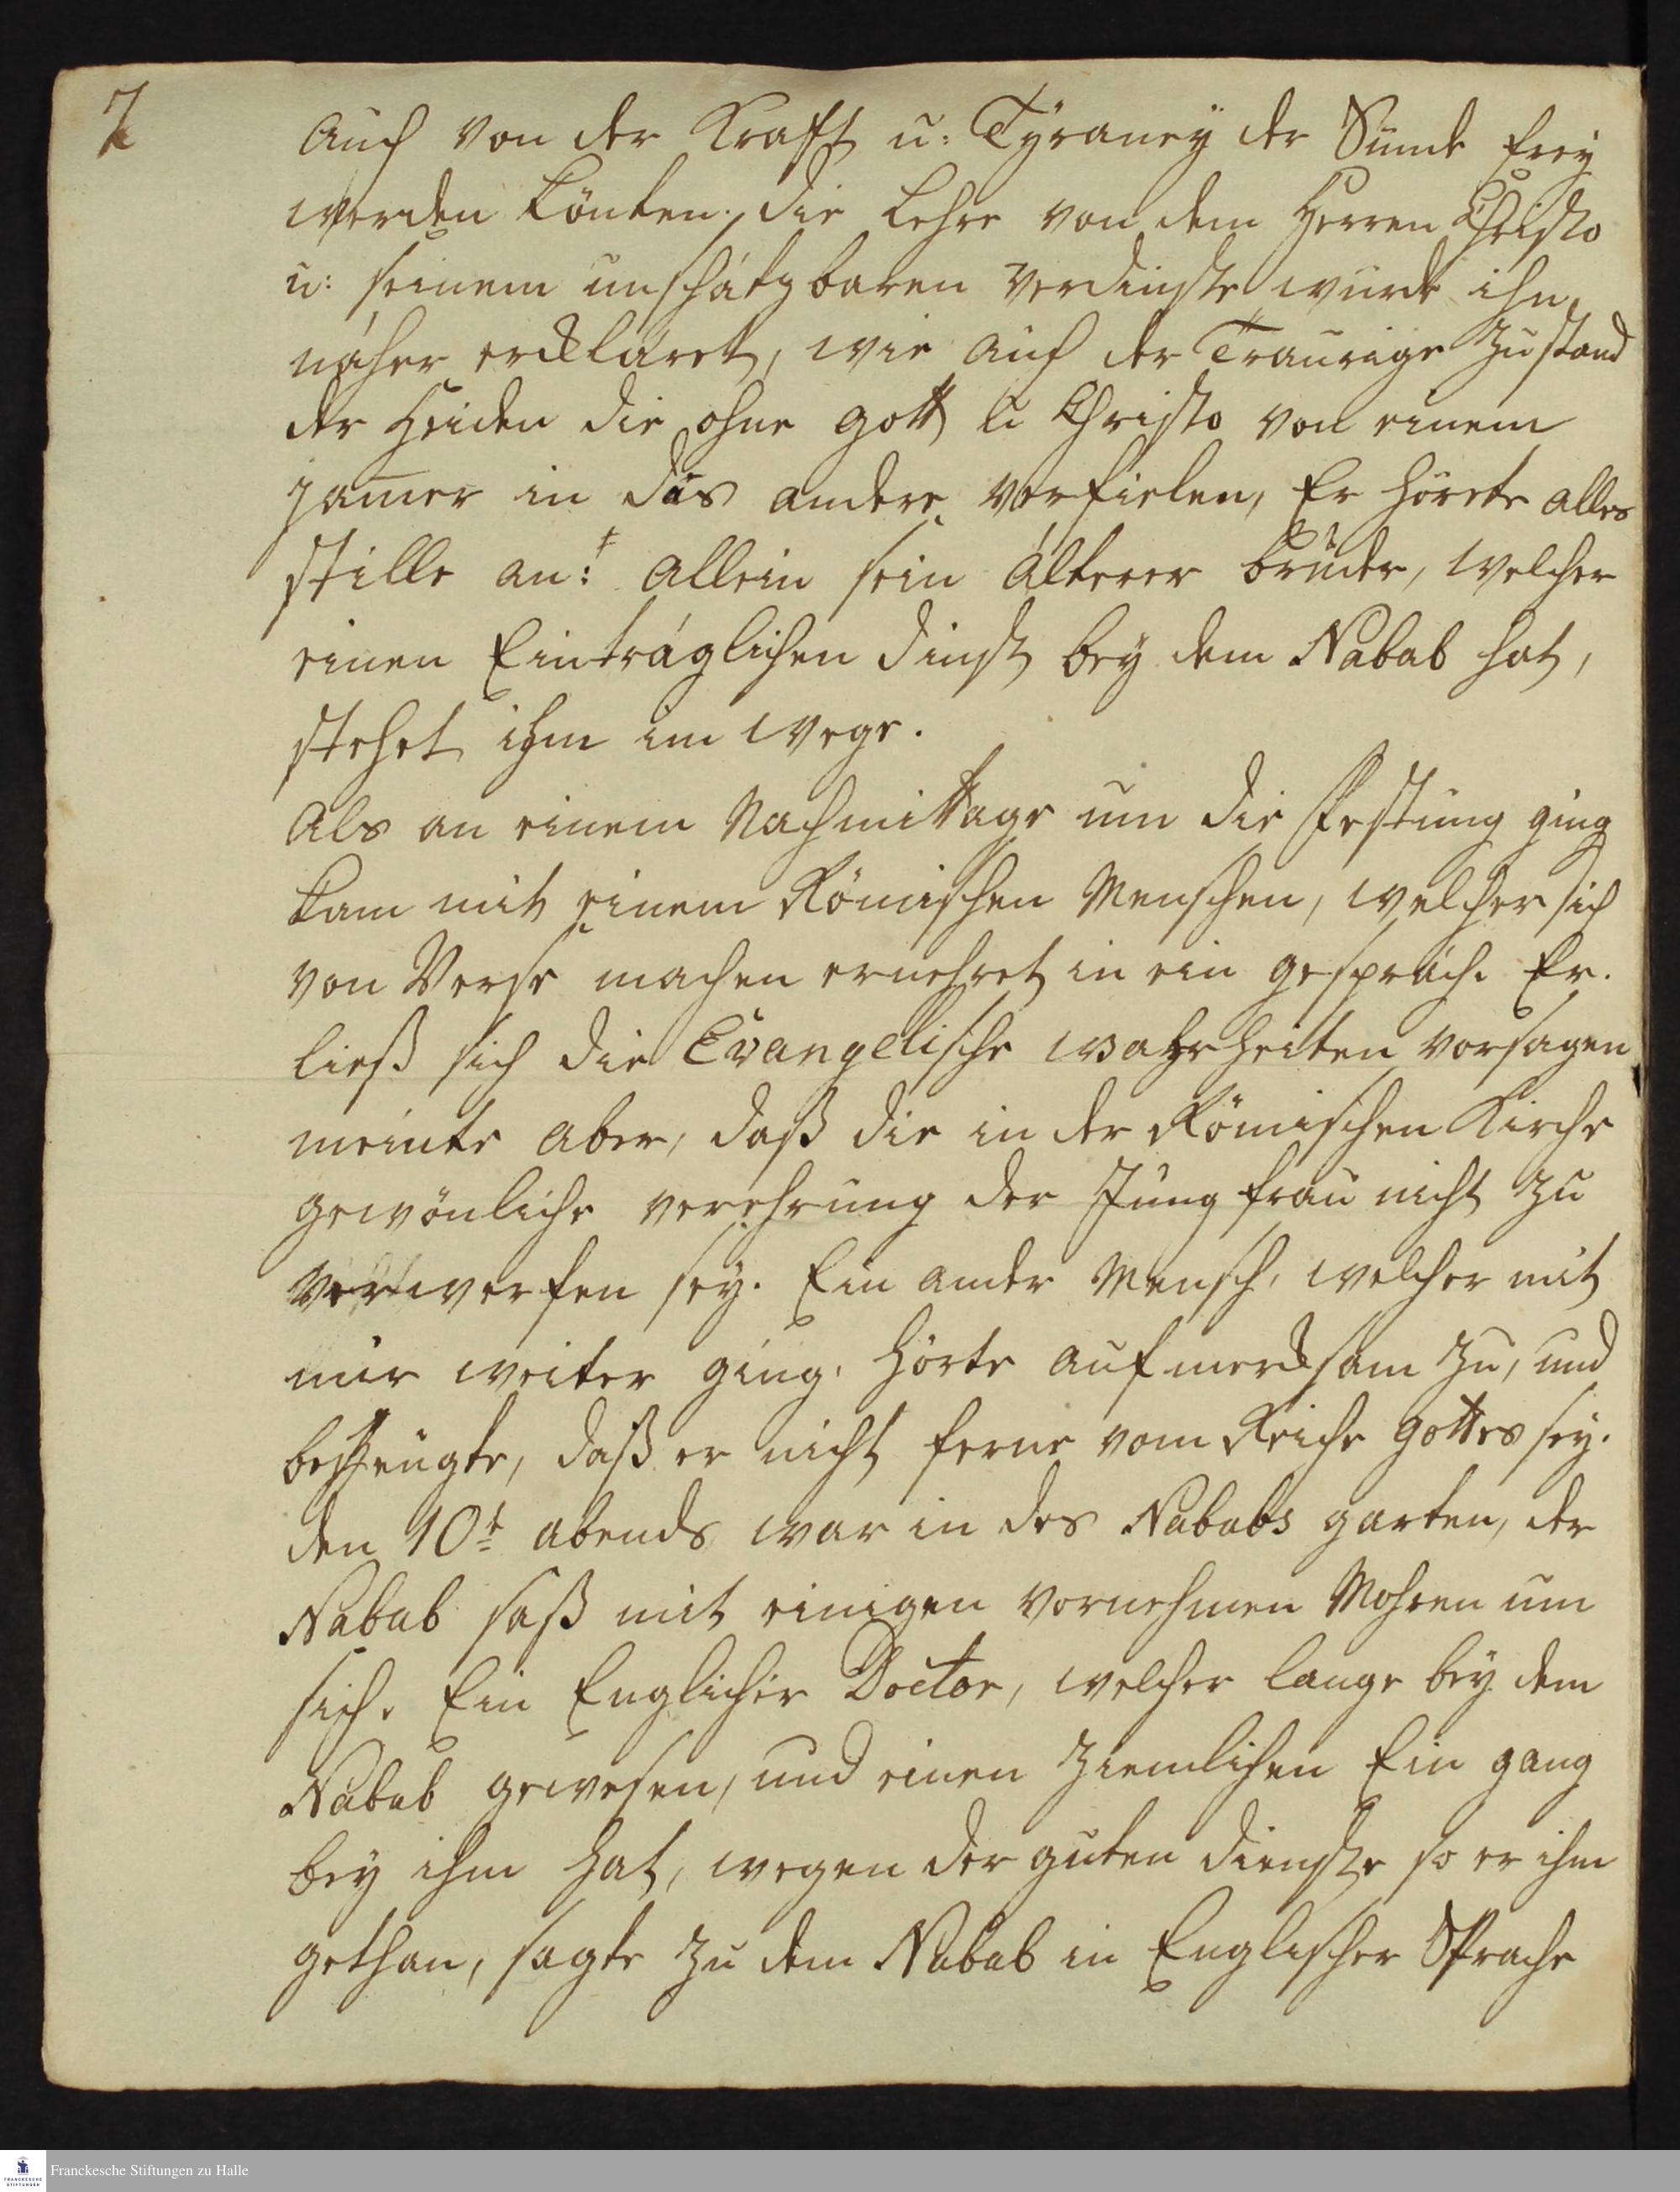 7
Auch von der Kraft u: Tÿraney der Sünde freÿ
werden könten. die Lehre von dem Herren Christo
u: seinem unschätzbaren Verdinste wurde ihn
näher erckläret, wie auch der Traurige Zustand
der Heiden die ohne gott u Christo von einem
jamer in das andere verfielen, Er hörete alles
stille an: ‡ allein sein älterer bruder, welcher
einen Einträglichen dinst beÿ dem Nabab hat,
stehet ihm im wege.
Als an einem Nachmittage um die Festung ging
kam mit einem Römischen Menschen, welcher sich
von Verse machen ernehret in ein gespräch. Er
ließ sich die Evangelische wahrheiten vorsagen
meinte aber, daß die in der Römischen Kirche
gewönliche verehrung der Jungfrau nicht zu
verwerfen seÿ. Ein ander Mensch, welcher mit
mir weiter ging, hörte aufmercksam zu, und
bezeugte, daß er nicht ferne vom Reiche gottes seÿ.
den 10t abends war in des Nababs garten, der
Nabab saß mit einigen vornehmen Mohren um
sich. Ein Englicher Doctor, welcher lange beÿ dem
Nabab gewesen, und einen ziemlichen Ein gang
beÿ ihm hat, wegen der guten dienste so er ihm
gethan, sagte zu dem Nabab in Englischer Sprache
Franckesche Stiftungen zu Halle
FRANCKESCHE
STIFTUNGEN